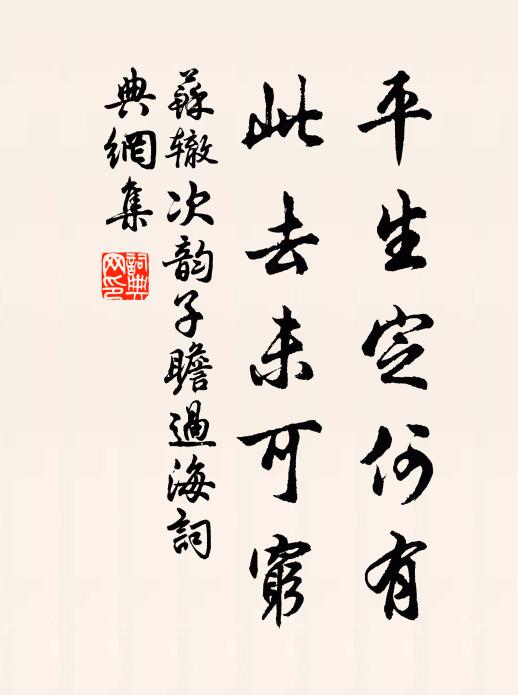 平生定何有
此去未可窮
蘇辙次韵子瞻過海詞
典網集
詞典网印